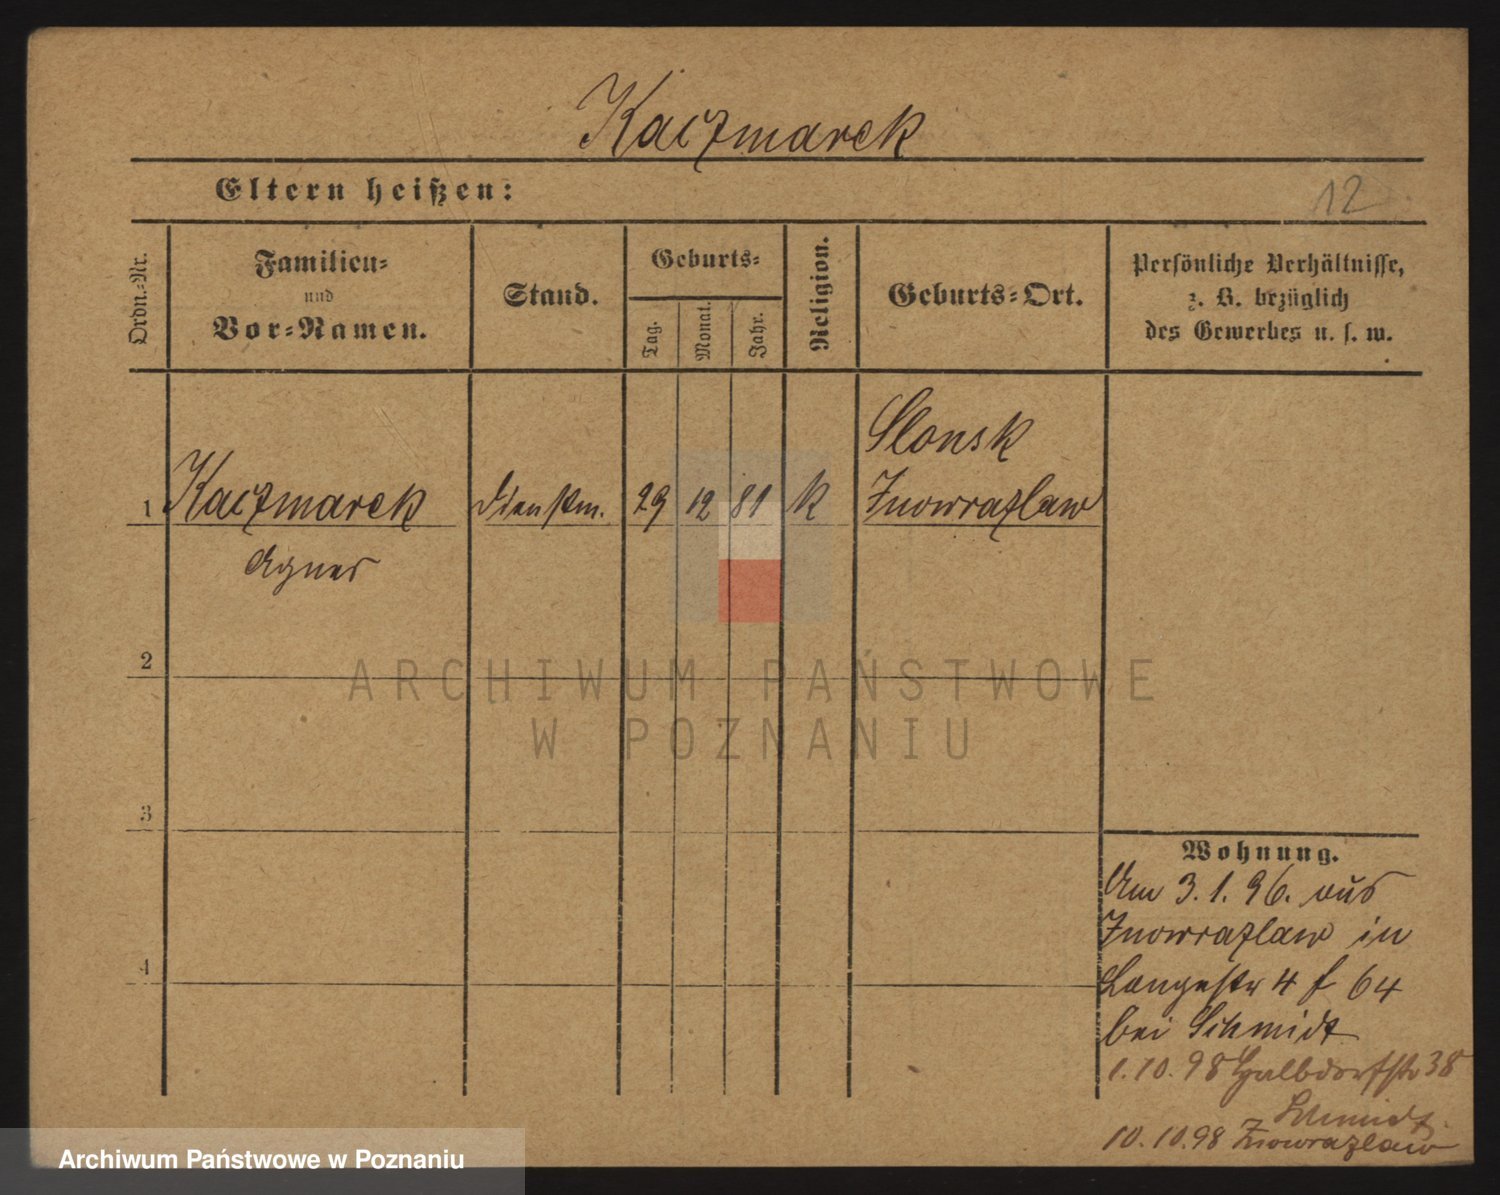 Kaczmarek
Eltern heißen:
12
Ordn.-Nr.
Familien-
und
Vor-Namen.
Stand.
Geburts-
Tag.
Monat.
Jahr.
Religion.
Geburts-Ort.
Persönliche Verhältnisse,
z. B. bezüglich
des Gewerbes u. s. w.
Slonsk
1 Kaczmarek Dienstm. 29 12 81 k Inowrazlaw
Agnes
2
ARCHIWUM PAŃSTWOWE
W POZNANIU
3
Wohnung.
Am 3.1.96. aus
Inowrazlaw in
4
Langestr 4 f 64
bei Schmidt
1.10.98 Halbdorfstr 38
Schmidt
10.10.98 Inowrazlaw
Archiwum Państwowe w Poznaniu